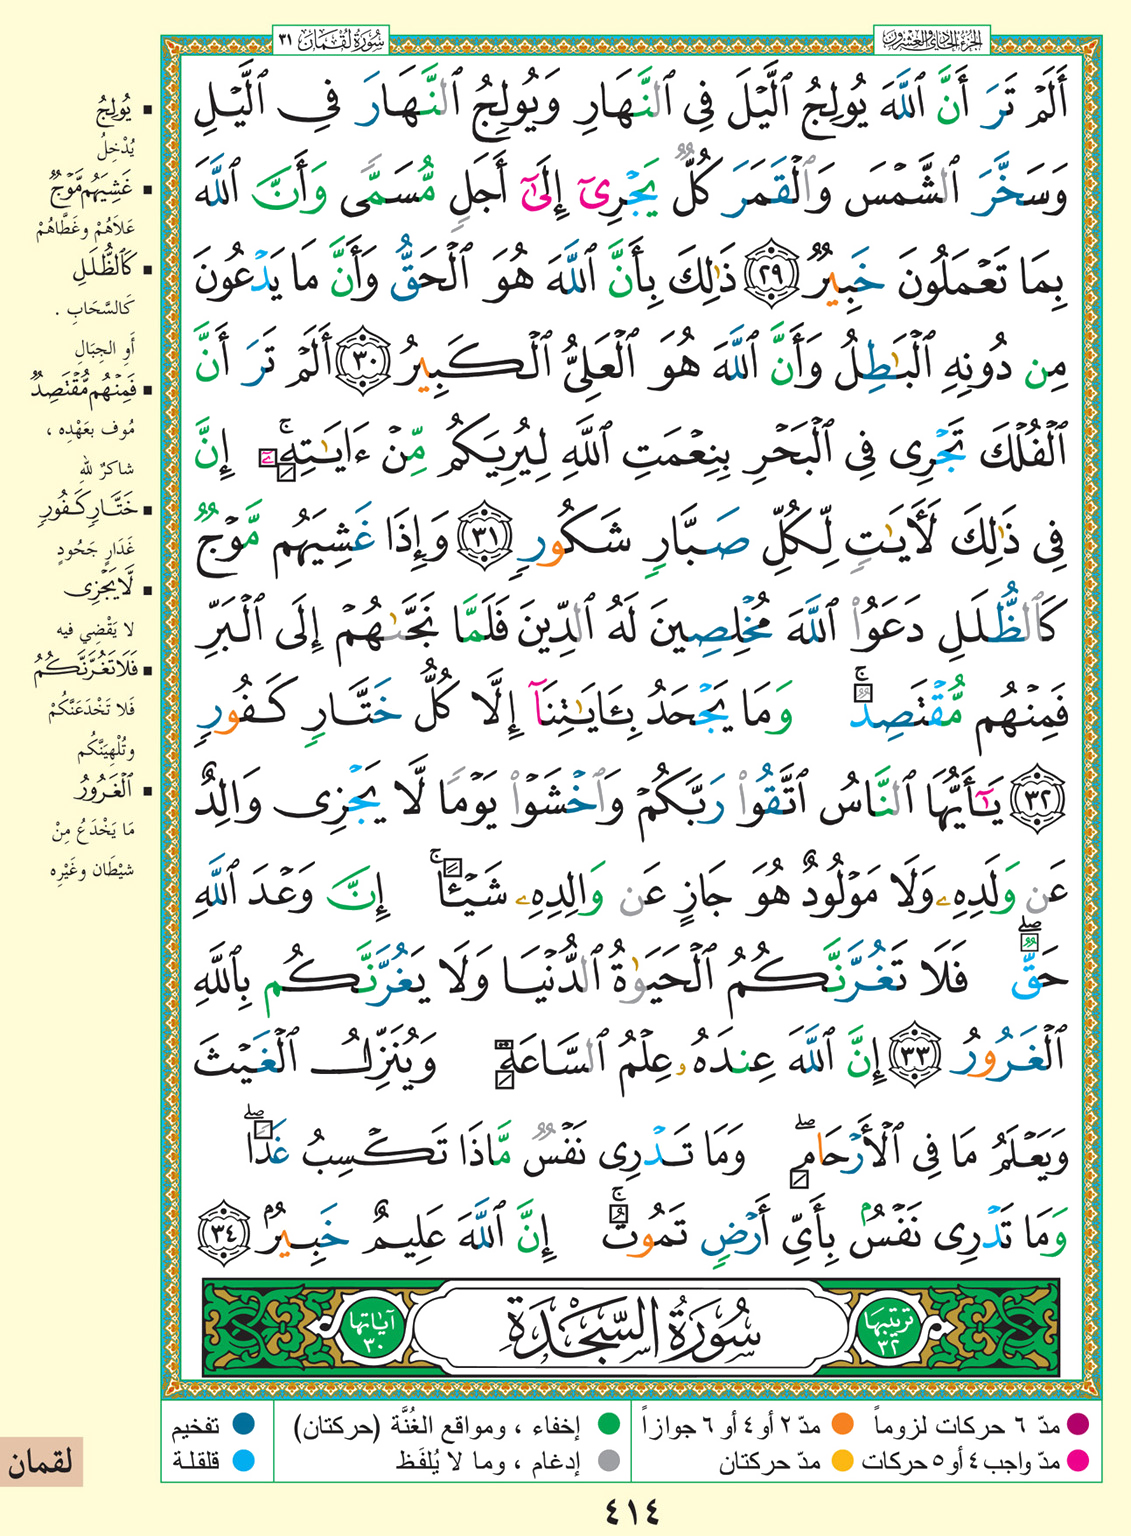 الجزء الحادي والعشرون
سُورَةُ لُقْمَان ٣١
أَلَمْ تَرَ أَنَّ ٱللَّهَ يُولِجُ ٱلَّيْلَ فِى ٱلنَّهَارِ وَيُولِجُ ٱلنَّهَارَ فِى ٱلَّيْلِ
وَسَخَّرَ ٱلشَّمْسَ وَٱلْقَمَرَ كُلٌّ يَجْرِىٓ إِلَىٰٓ أَجَلٍ مُّسَمًّى وَأَنَّ ٱللَّهَ
بِمَا تَعْمَلُونَ خَبِيرٌ ٢٩ ذَٰلِكَ بِأَنَّ ٱللَّهَ هُوَ ٱلْحَقُّ وَأَنَّ مَا يَدْعُونَ
مِن دُونِهِ ٱلْبَٰطِلُ وَأَنَّ ٱللَّهَ هُوَ ٱلْعَلِىُّ ٱلْكَبِيرُ ٣٠ أَلَمْ تَرَ أَنَّ
ٱلْفُلْكَ تَجْرِى فِى ٱلْبَحْرِ بِنِعْمَتِ ٱللَّهِ لِيُرِيَكُم مِّنْ ءَايَٰتِهِۦٓ ۚ إِنَّ
فِى ذَٰلِكَ لَأَيَٰتٍ لِّكُلِّ صَبَّارٍ شَكُورٍ ٣١ وَإِذَا غَشِيَهُم مَّوْجٌ
كَٱلظُّلَلِ دَعَوُا۟ ٱللَّهَ مُخْلِصِينَ لَهُ ٱلدِّينَ فَلَمَّا نَجَّىٰهُمْ إِلَى ٱلْبَرِّ
فَمِنْهُم مُّقْتَصِدٌ ۚ وَمَا يَجْحَدُ بِـَٔايَٰتِنَآ إِلَّا كُلُّ خَتَّارٍ كَفُورٍ
٣٢ يَٰٓأَيُّهَا ٱلنَّاسُ ٱتَّقُوا۟ رَبَّكُمْ وَٱخْشَوْا۟ يَوْمًا لَّا يَجْزِى وَالِدٌ
عَن وَلَدِهِۦ وَلَا مَوْلُودٌ هُوَ جَازٍ عَن وَالِدِهِۦ شَيْـًٔا ۚ إِنَّ وَعْدَ ٱللَّهِ
حَقٌّ ۖ فَلَا تَغُرَّنَّكُمُ ٱلْحَيَوٰةُ ٱلدُّنْيَا وَلَا يَغُرَّنَّكُم بِٱللَّهِ
ٱلْغَرُورُ ٣٣ إِنَّ ٱللَّهَ عِندَهُۥ عِلْمُ ٱلسَّاعَةِ وَيُنَزِّلُ ٱلْغَيْثَ
وَيَعْلَمُ مَا فِى ٱلْأَرْحَامِ ۖ وَمَا تَدْرِى نَفْسٌ مَّاذَا تَكْسِبُ غَدًا ۖ
وَمَا تَدْرِى نَفْسٌۢ بِأَىِّ أَرْضٍ تَمُوتُ ۚ إِنَّ ٱللَّهَ عَلِيمٌ خَبِيرٌۢ ٣٤
ترتيبها ٣٢
سُورَةُ السَّجْدَةِ
آياتها ٣٠
يُولِجُ
يُدْخِلُ
غَشِيَهُم مَّوْجٌ
عَلاَهُمْ وغَطَّاهُمْ
كَٱلظُّلَلِ
كَالسَّحَابِ .
أَوِ الجِبَالِ
فَمِنْهُم مُّقْتَصِدٌ
مُوفٍ بعَهْدِه ،
شاكرٌ للهِ
خَتَّارٍ كَفُورٍ
غَدَارٍ جَحُودٍ
لَّا يَجْزِى
لا يَقْضِي فيه
فَلَا تَغُرَّنَّكُمُ
فَلا تَخْدَعَنَّكُمْ
وتُلْهِيَنَّكُم
ٱلْغَرُورُ
مَا يَخْدَعُ مِنْ
شيْطَان وغَيْرِه
مدّ ٦ حركات لزوماً
مدّ ٢ أو ٤ أو ٦ جوازاً
إخفاء ، ومواقع الغُنَّة (حركتان)
تفخيم
مدّ واجب ٤ أو ٥ حركات
مدّ حركتان
إدغام ، وما لا يُلفَظ
قلقلة
لقمان
٤١٤